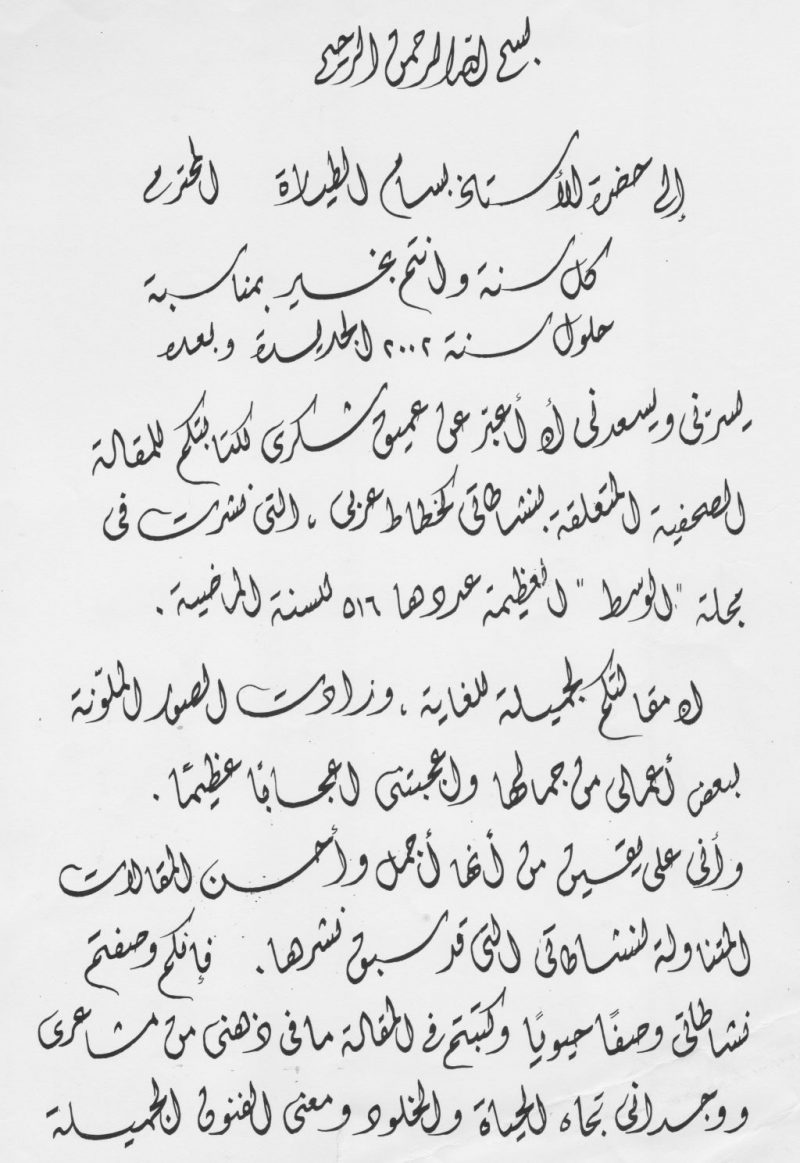 بسم الله الرحمن الرحيم
إلى حضرة الأستاذ بسام الطيارة المحترم
كل سنة وانتم بخير بمناسبة
حلول سنة ٢٠٠٢ الجديدة وبعده
يسرّنى ويسعدنى أن أعبّر عن عميق شكرى لكتابتكم للمقالة
الصحفية المتعلقة بنشاطاتى كخطاط عربى ، التى نشرت فى
مجلة "الوسط" العظيمة عددها ٥١٦ للسنة الماضية .
ان مقالتكم لجميلة للغاية ، وزادت الصور الملوّنة
لبعض أعمالى من جمالها واعجبتنى اعجابًا عظيمًا .
وأنى على يقين من أنها أجمل وأحسن المقالات
المتناولة لنشاطاتى التى قد سبق نشرها . فإنكم وصفتم
نشاطاتى وصفًا حيويًا وكتبتم فى المقالة ما فى ذهنى من مشاعرى
ووجدانى تجاه الحياة والخلود ومعنى الفنون الجميلة